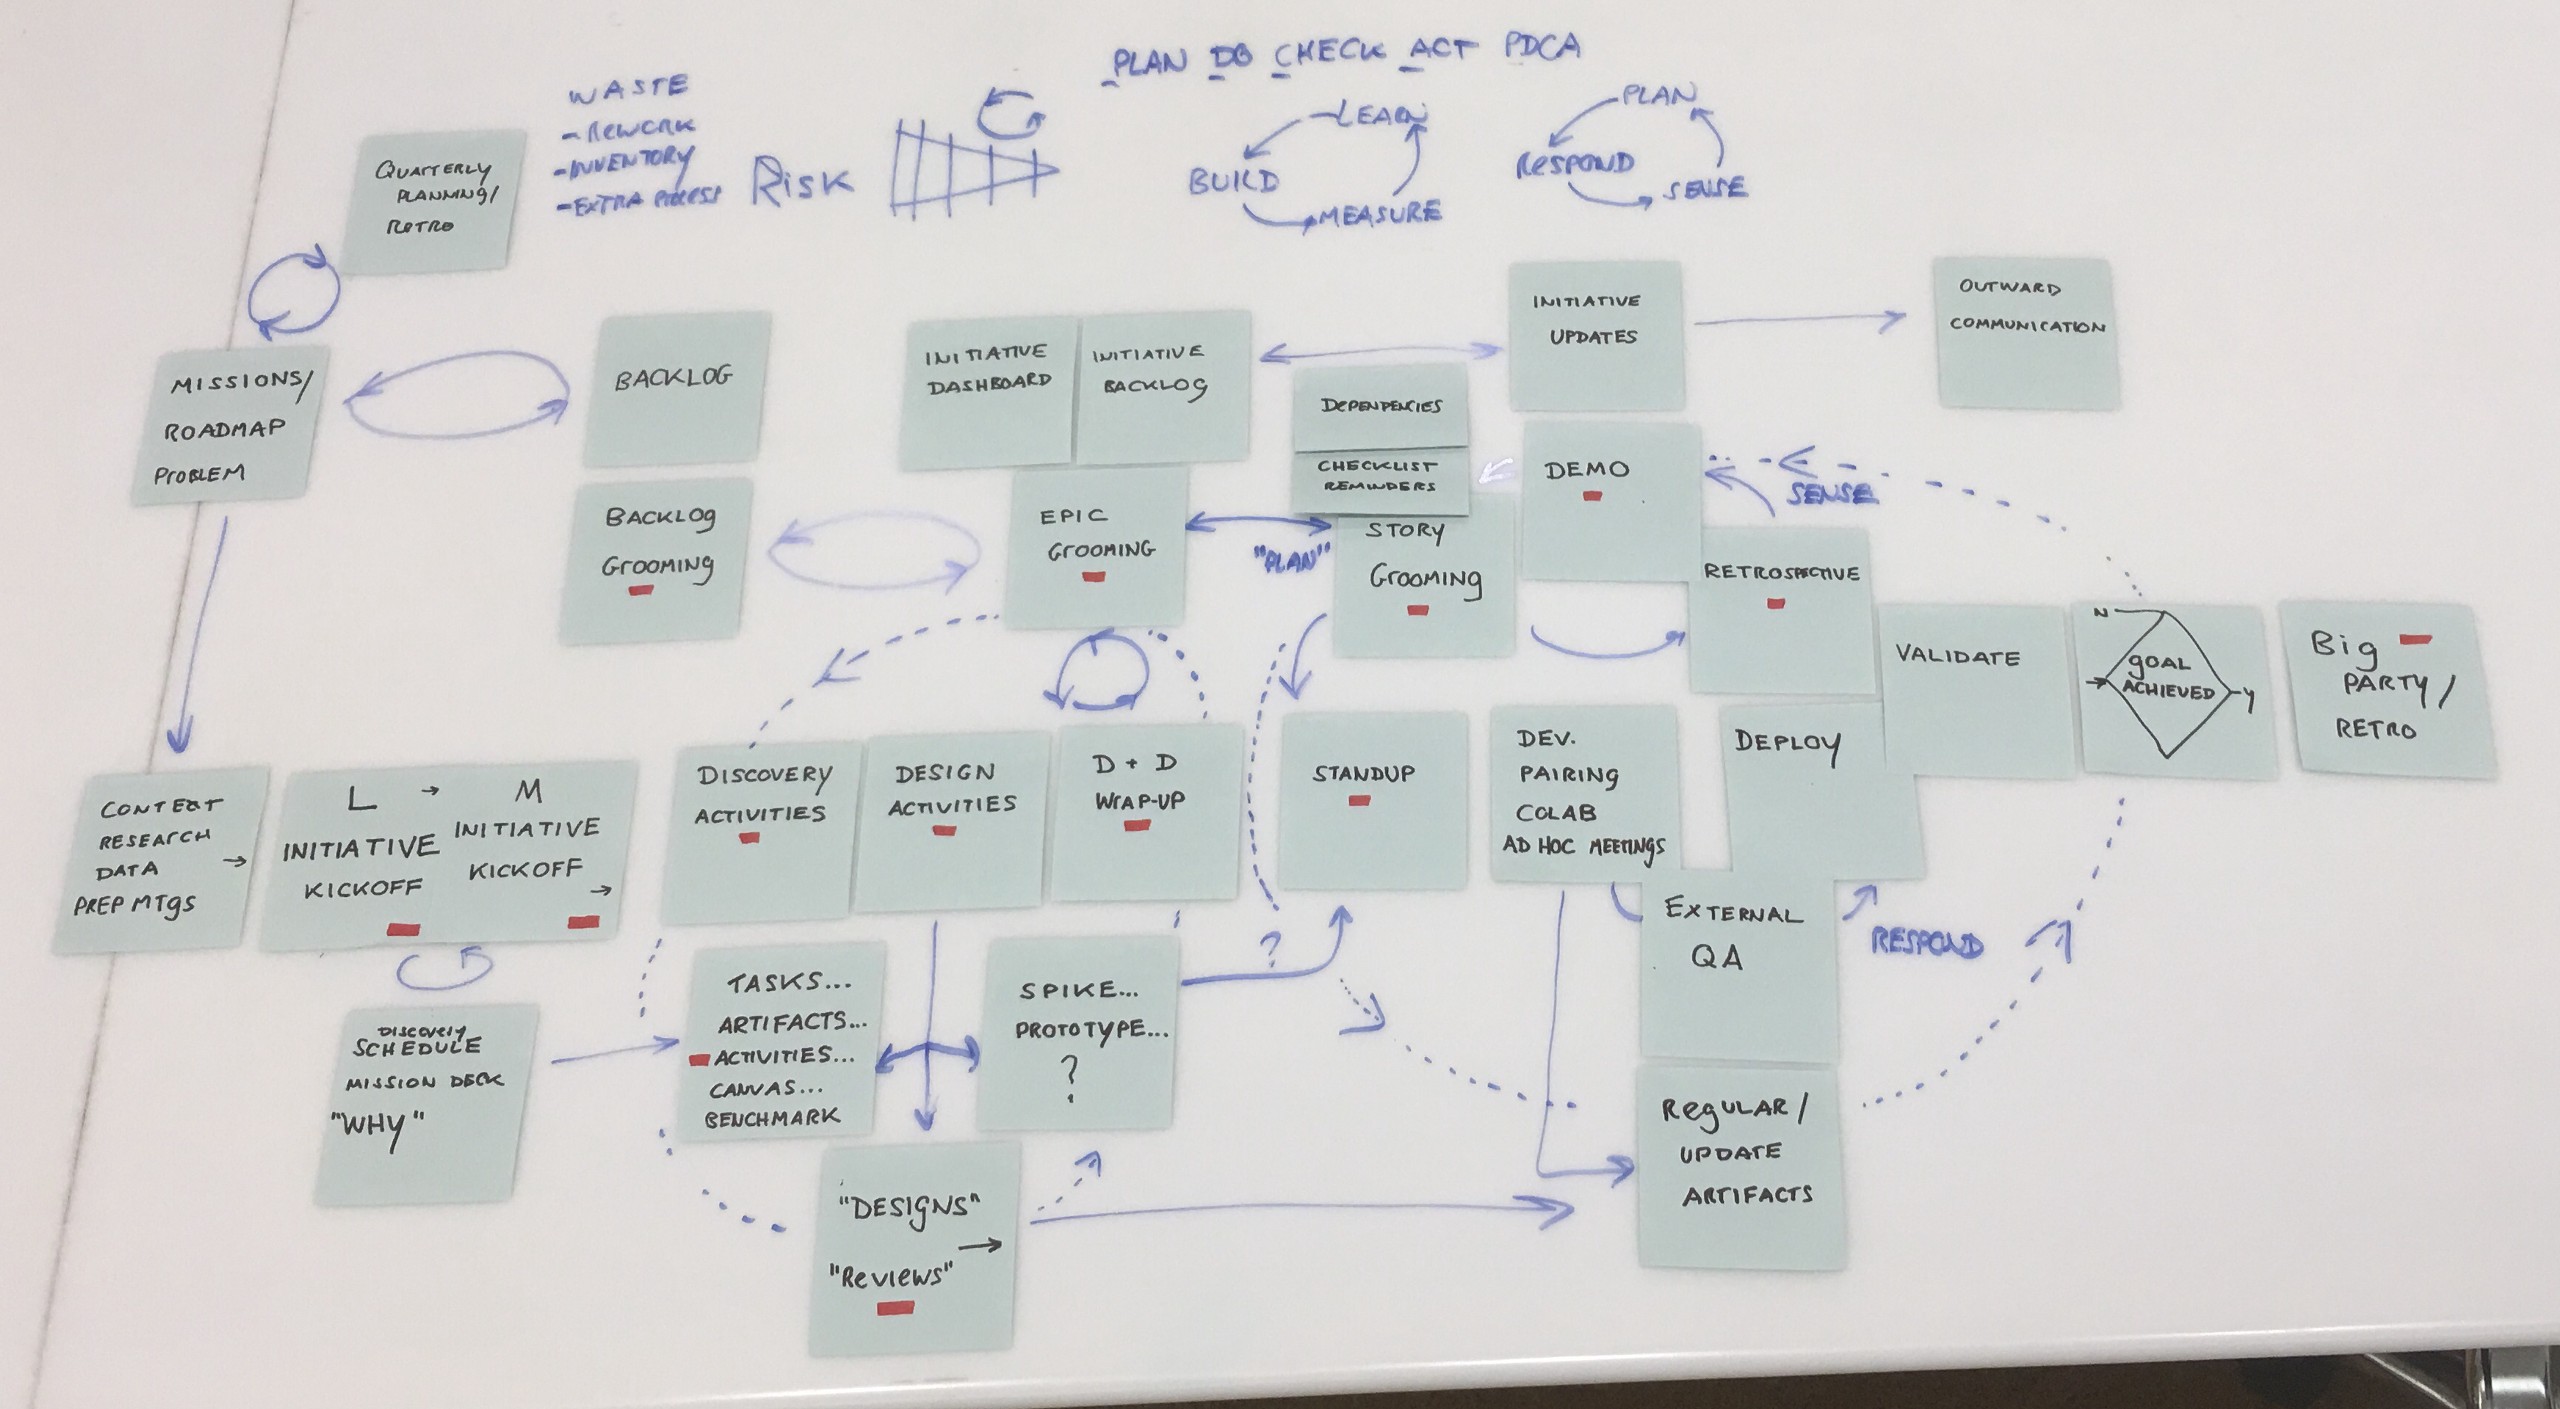 PLAN DO CHECK ACT PDCA
WASTE
- REWORK
- INVENTORY
- EXTRA PROCESS
RISK
LEARN
BUILD
MEASURE
PLAN
RESPOND
SENSE
QUATERLY
PLANNING/
RETRO
MISSIONS/
ROADMAP
PROBLEM
BACKLOG
INITIATIVE
DASHBOARD
INITIATIVE
BACKLOG
INITIATIVE
UPDATES
OUTWARD
COMMUNICATION
DEPENPENCIES
CHECKLIST
REMINDERS
BACKLOG
GROOMING
EPIC
GROOMING
"PLAN"
STORY
GROOMING
DEMO
SENSE
RETROSPECTIVE
VALIDATE
N
GOAL
ACHIEVED
Y
BIG
PARTY/
RETRO
CONTEXT
RESEARCH
DATA →
PREP MTGS
L → M
INITIATIVE
KICKOFF
INITIATIVE
KICKOFF →
DISCOVERY
ACTIVITIES
DESIGN
ACTIVITIES
D + D
WRAP-UP
STANDUP
DEV.
PAIRING
COLAB
AD HOC MEETINGS
DEPLOY
EXTERNAL
QA
RESPOND
DISCOVERY
SCHEDULE
MISSION DECK
"WHY"
TASKS...
ARTIFACTS...
ACTIVITIES...
CANVAS...
BENCHMARK
SPIKE...
PROTOTYPE...
?
?
"DESIGNS"
→
"REVIEWS"
REGULAR/
UPDATE
ARTIFACTS